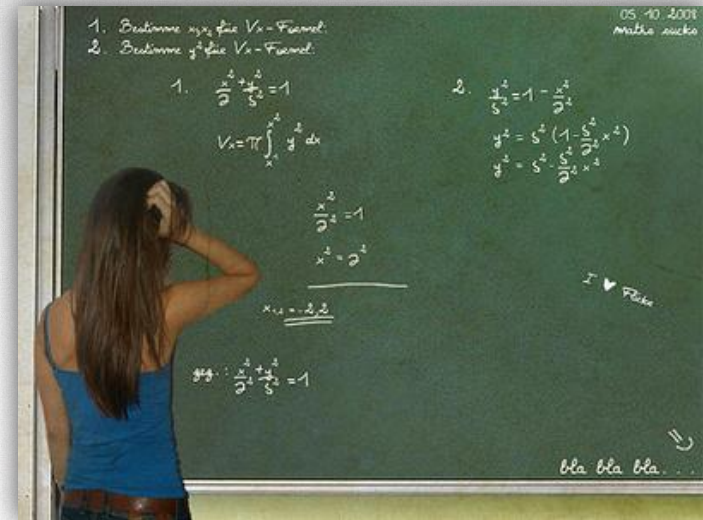 1. Bestimme x₁,x₂ für Vx-Formel:
2. Bestimme y² für Vx-Formel:
05. 10. 2008
maths sucks
1. x²/2² + y²/5² = 1
Vx = π ∫ y² dx
x²/2² = 1
x² = 2²
x₁,₂ = -2,2
geg.: x²/2² + y²/5² = 1
2. y²/5² = 1 - x²/2²
y² = 5² (1 - 5²/2² x²)
y² = 5² - 5²/2² x²
I ♥
bla bla bla. . .